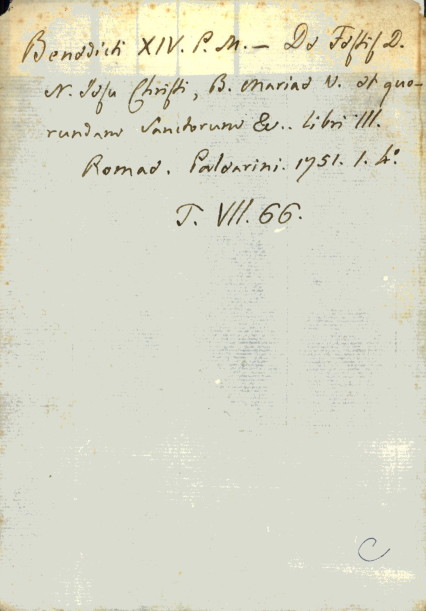 Benedicti XIV. P. M. — De Festis D.
N. Jesu Christi, B. Mariae V. et quo-
rundam Sanctorum &c. Libri III.
Romae. Palearini. 1751. 1. 4.º
T. VII. 66.
C